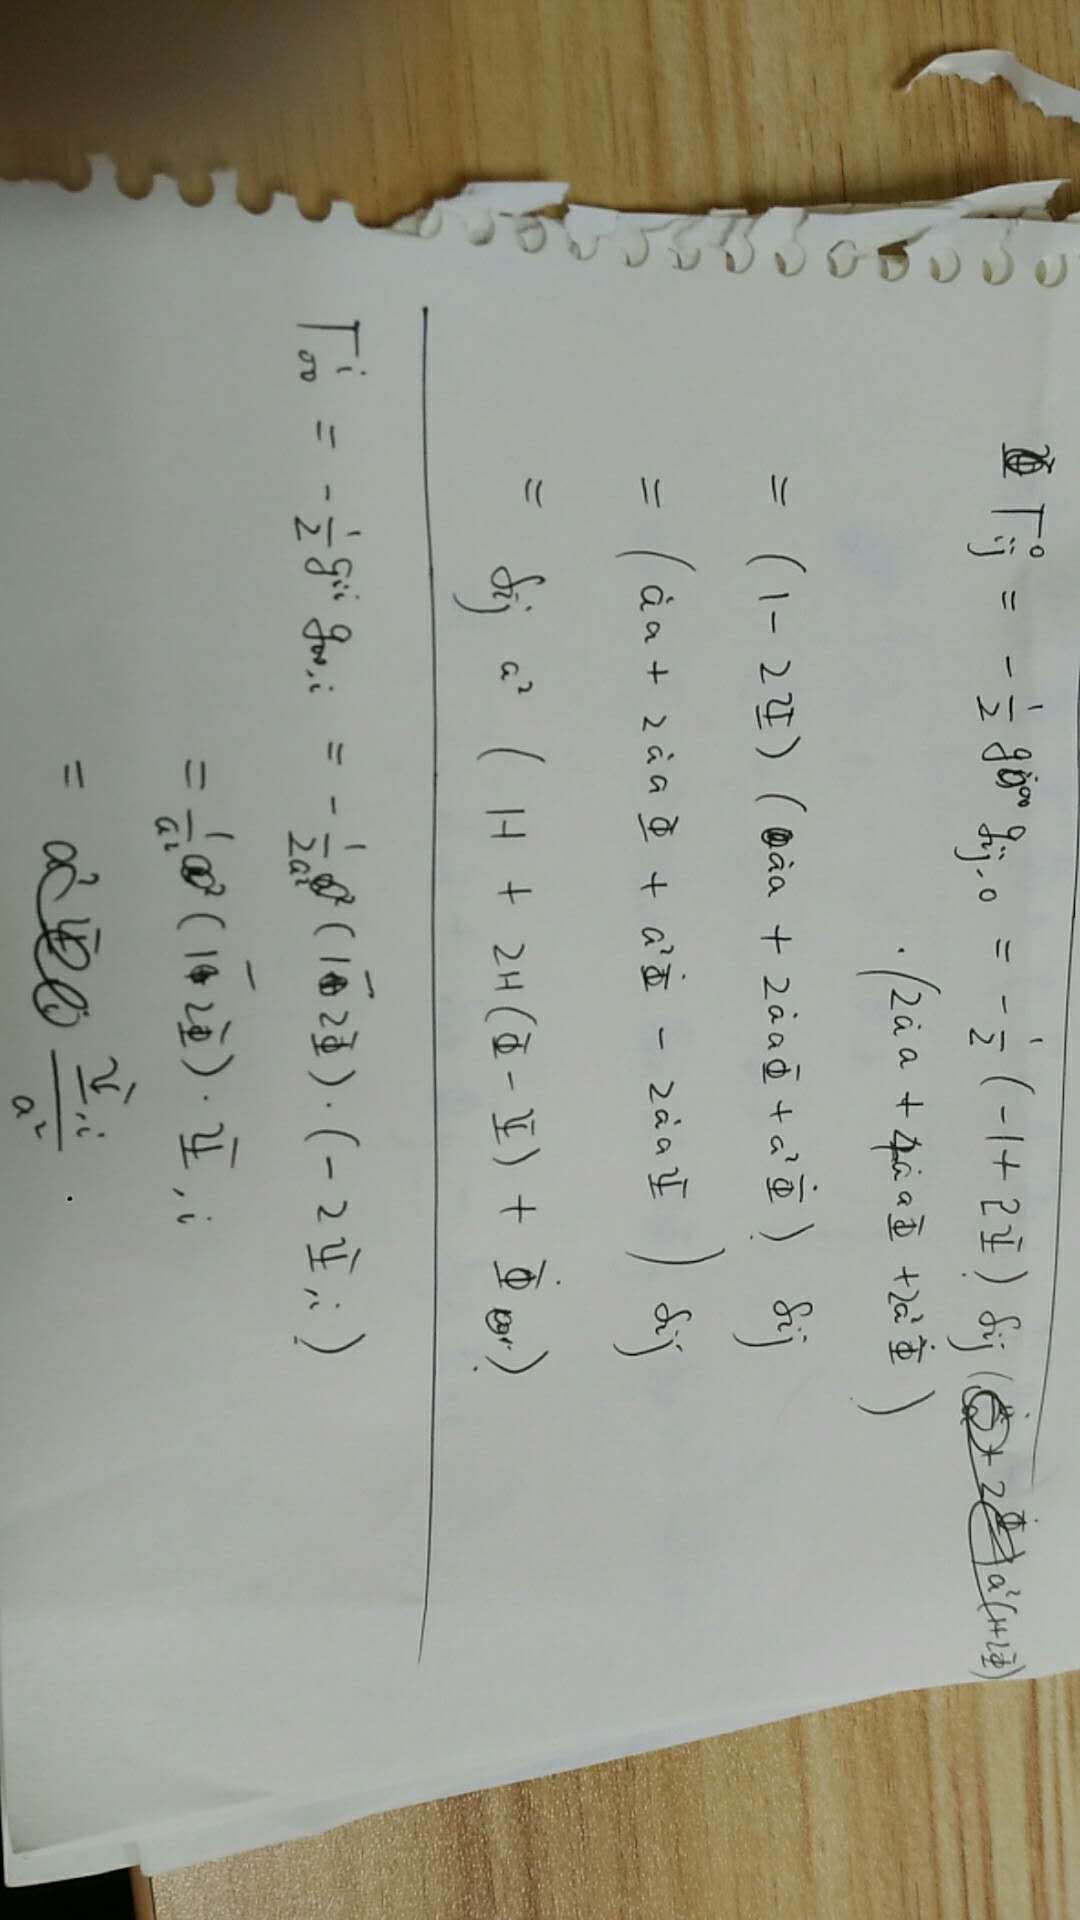 Γ⁰ᵢⱼ = -1/2 g⁰⁰ gᵢⱼ,₀ = -1/2 (-1+2Ψ) δᵢⱼ a²(1+2Φ)
· (2ȧa + 4ȧaΦ + 2a²Φ̇)
= (1-2Ψ) (ȧa + 2ȧaΦ + a²Φ̇) δᵢⱼ
= (ȧa + 2ȧaΦ + a²Φ̇ - 2ȧaΨ) δᵢⱼ
= δᵢⱼ a² (H + 2H(Φ-Ψ) + Φ̇)
Γⁱ₀₀ = -1/2 gⁱⁱ g₀₀,ᵢ = -1/2a² (1-2Φ)·(-2Ψ,ᵢ)
= 1/a² (1-2Φ)·Ψ,ᵢ
= Ψ,ᵢ/a².